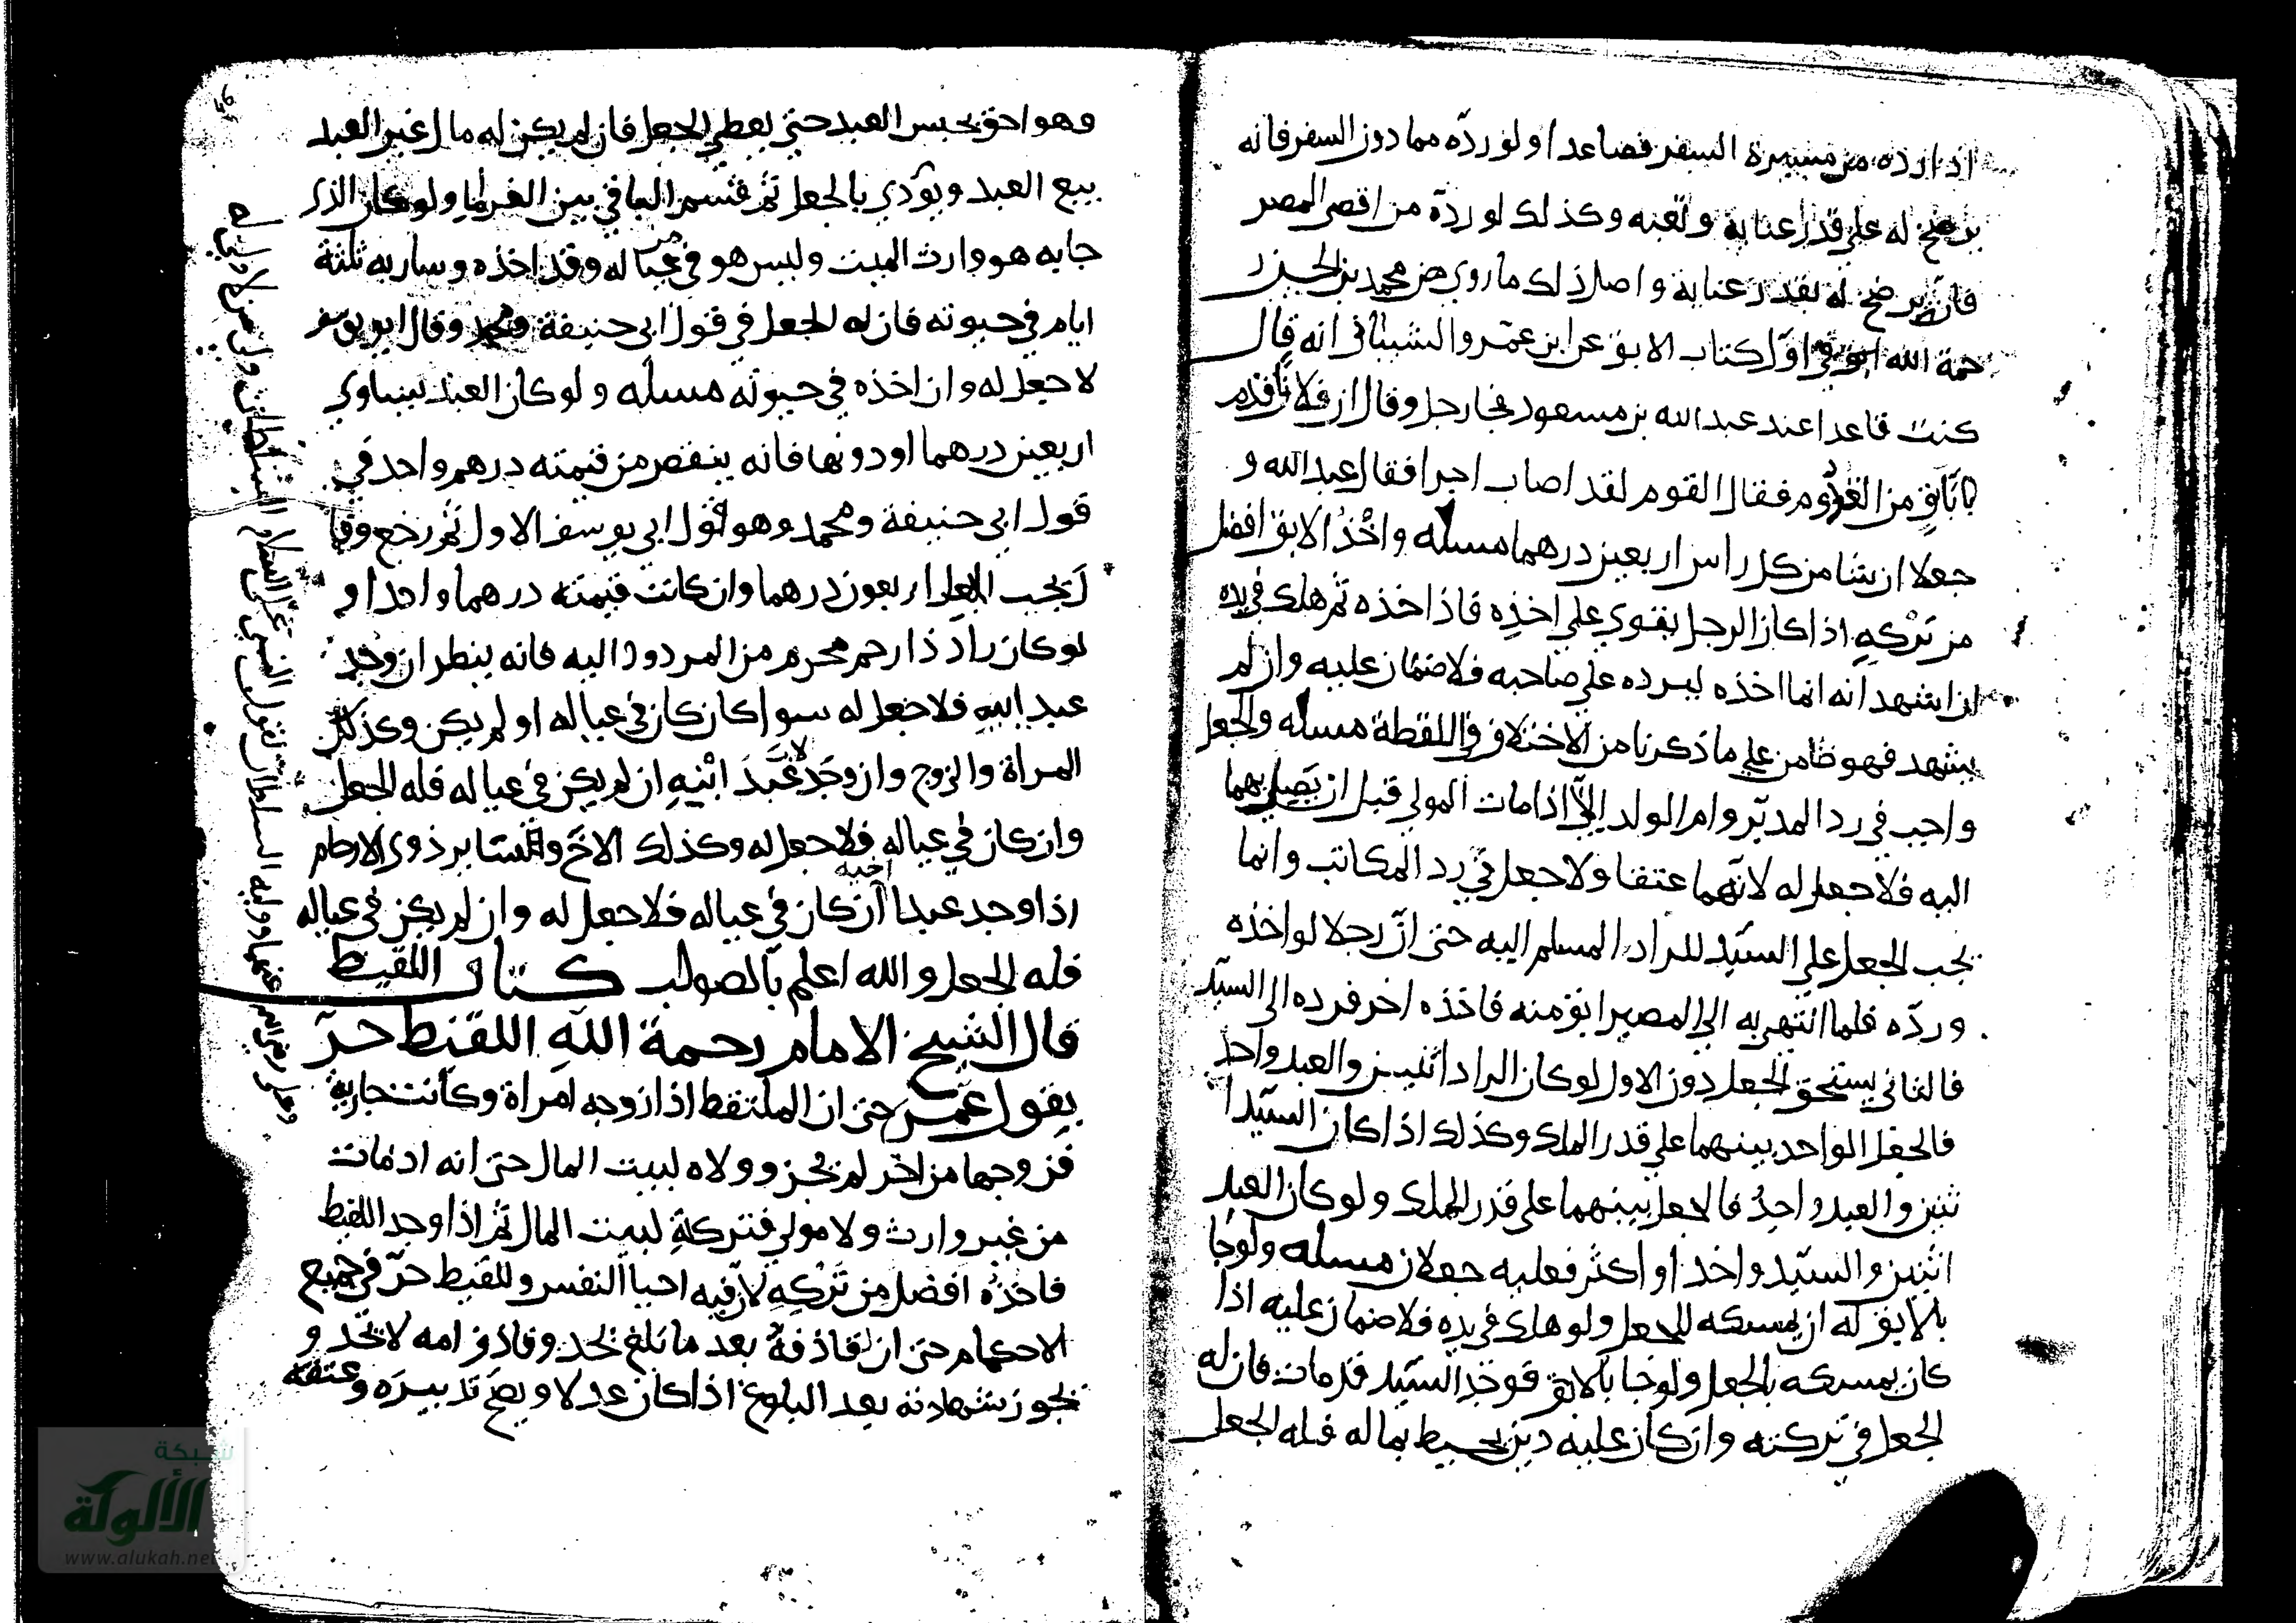 اذا رده من مسيرة السفر فصاعدا ولو ردّه مما دون السفر فانه
يرضخ له على قدر عنايه وتعبه وكذلك لو ردّه من اقصى المصر
فانه يرضخ له بقدر عنايه واصل ذلك ما روي عن محمد بن الحسن ر
حمة الله في اوّل كتاب الابق عن ابن عمرو الشيباني انه قال
كنت قاعدا عند عبد الله بن مسعود فجا رجل وقال ان فلانا قدم
باباقٍ من القوم فقال القوم لقد اصاب اجرا فقال عبد الله و
جعلا ان شا من كل راس اربعين درهما مسله واخْذُ الابق افضل
من تَرْكهِ اذا كان الرجل يقوي على اخذِه فاذا اخذه ثم هلك في يده
ان اشهد انه انما اخذه ليرده على صاحبه فلا ضمان عليه وان لم
يشهد فهو ضامن على ما ذكرنا من الاختلاف في اللقطة مسله والجعل
واجب في رد المدبّر وام الولد الّا اذا مات المولي قبل ان يَصِل بهما
اليه فلا جعل له لانّهما عتقا ولا جعل في رد المكاتب وانما
يجب الجعل على السيّد للراد المسلم اليه حتى انّ رجلا لو اخذه
وردّه فلما انتهى به الى المصر ابق منه فاخذه اخر فرده الى السيّد
فالثاني يستحق الجعل دون الاول لو كان الراد اثنين والعبد واحد
فالجعل الواحد بينهما على قدر الملك وكذلك اذا كان السيّد ا
ثنين والعبد واحدُ فالجعل بينهما على قدر الملك ولو كان العبد
اثنين والسيّد واحد او اكثر فعليه جعلان مسله ولو جا
بالابق له ان يمسكه للجعل ولو هلك في يده فلا ضمان عليه اذا
كان يمسكه بالجعل ولو جا بالابق فوجد السيّد قد مات فان له
الجعل في تركته وان كان عليه دين يحيط بماله فله الجعل
وهو احق بحبس العبد حتى يعطي الجعل فان لم يكن له مال غير العبد
بيع العبد ويؤدي بالجعل ثم قسم الباقي بين الغرما ولو كان الذي
جا به هو وارث الميت وليس هو في عياله وقد اخذه وسار به ثلثة
ايام في حيوته فان له الجعل في قول ابي حنيفة ومحمد وقال ابو يوسف
لا جعل له وان اخذه في حيوته مسله ولو كان العبد يساوي
اربعين درهما او دونها فانه ينقص من قيمته درهم واحد في
قول ابي حنيفة ومحمد وهو قول ابي يوسف الاول ثم رجع وقا
ل يجب الجعل اربعون درهما وان كانت قيمته درهما واحدا و
لو كان راد ذا رحم محرم من المردود اليه فانه ينظر ان وجد
عبد ابيهِ فلا جعل له سوا كان كان في عياله او لم يكن وكذلك
المراة والزوج وان وجَد عَبدَ ابْنِهِ ان لم يكن في عياله فله الجعل
وان كان في عياله فلا جعل له وكذلك الاخ وسَاير ذوي الارحام
اذا وجد عبد اخيه ان كان في عياله فلا جعل له وان لم يكن في عياله
فله الجعل والله اعلم بالصواب كتاب اللقيط
قال الشيخ الامام رحمة الله اللقيط حرّ
بقول عُمَر حتى ان الملتقط اذا زوجه امراة وكانت جارية
فزوجها من اخر لم يجز وولاه لبيت المال حتى انه اذ مات
من غير وارث ولا مولي فتركة لبيت المال ثم اذا وجد اللقيط
فاخذُه افضل من تَرْكِهِ لان فيه احيا النفس واللقيط حرّ في جميع
الاحكام حتى ان قاذفهُ بعد ما بلغ يحد وقاذف امه لا يحد و
تجوز شهادته بعد البلوغ اذا كان عدلا ويصح تدبيره وعتقه
شبكة
الألوكة
www.alukah.net